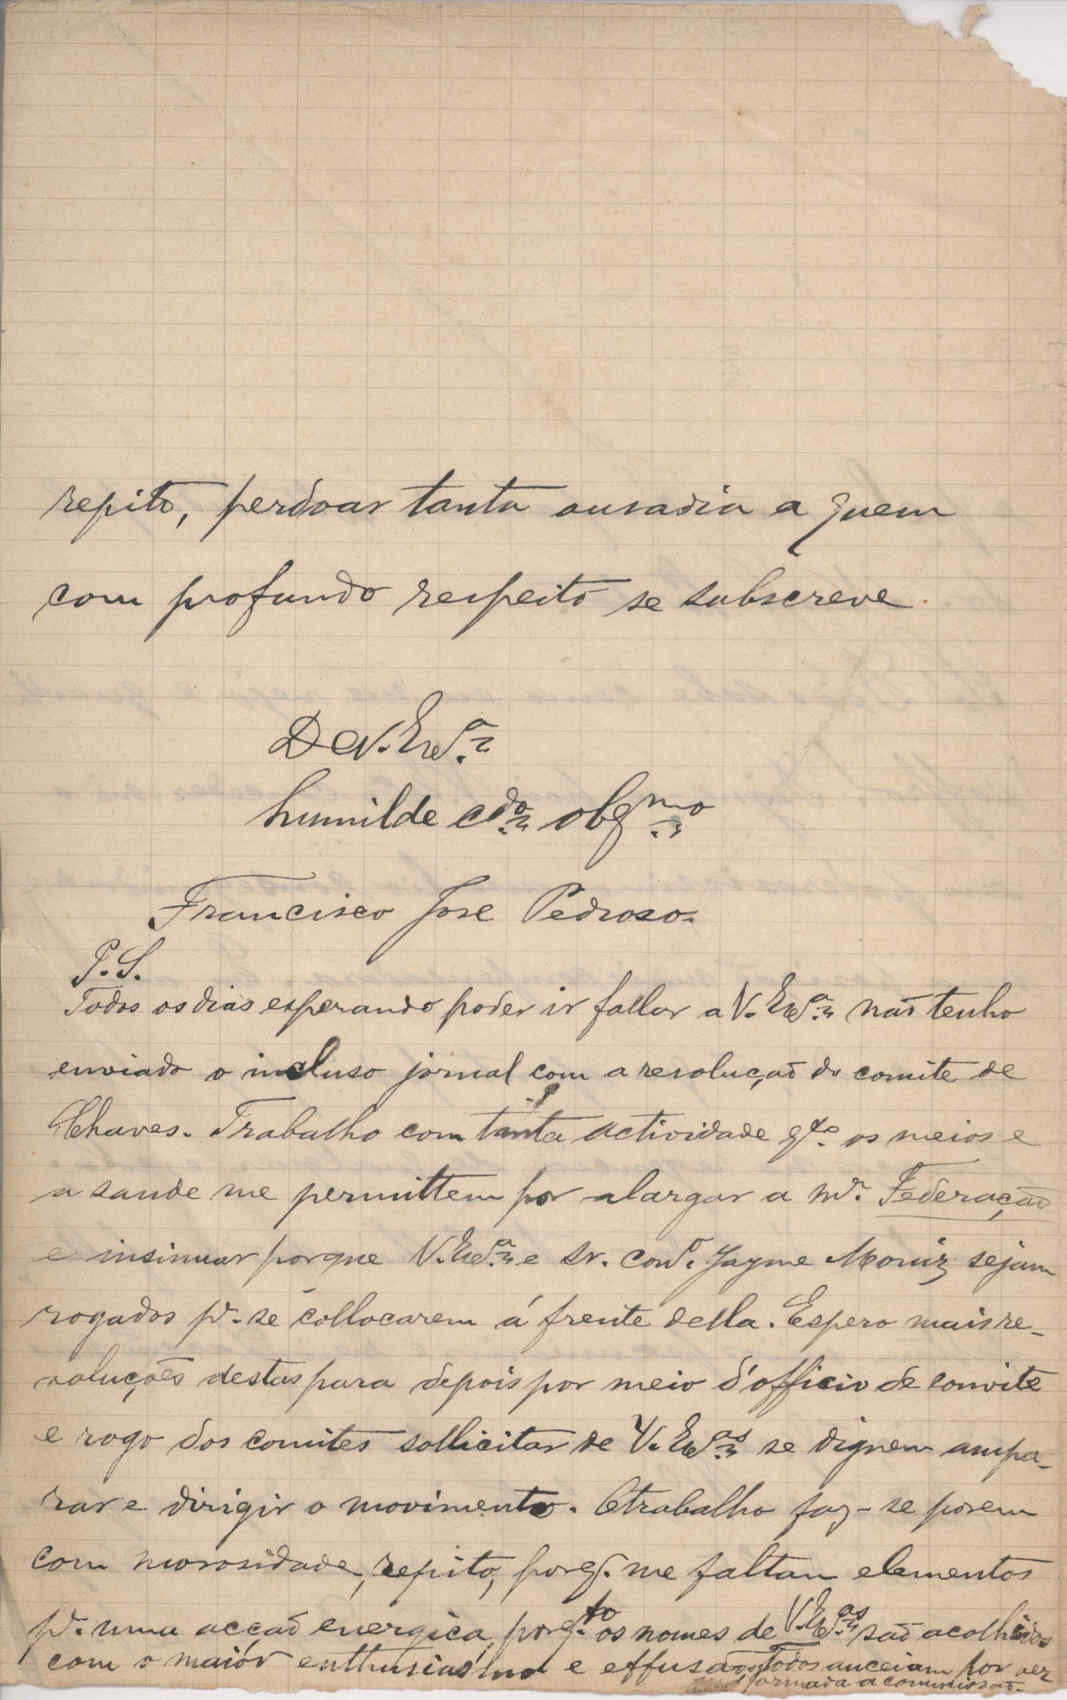 repito, perdoar tanta ousadia a quem
com profundo respeito se subscreve.
De V. Exª
humilde cdo obgmo
Francisco José Pedroso.
P.S.
Todos os dias esperando poder ir fallar a V. Exª não tenho
enviado o incluso jornal com a resolução do comite de
Chaves. Trabalho com tanta actividade qto os meios e
a saude me permittem por alargar a mª Federação
e insinuar porque V. Exª e Sr. Consº Jayme Moniz sejam
rogados pª se collocarem á frente della. Espero mais re-
soluções destas para depois por meio d'officio de convite
e rogo dos comites sollicitar de V. Exas se dignem ampa-
rar e dirigir o movimento. O trabalho faz-se porem
com morosidade, repito, porq. me faltam elementos
pª uma acção energica, porqto os nomes de V. Exas são acolhidos
com o maiór enthusiasmo e effusão. Todos anceiam por ver
formada a commissão.